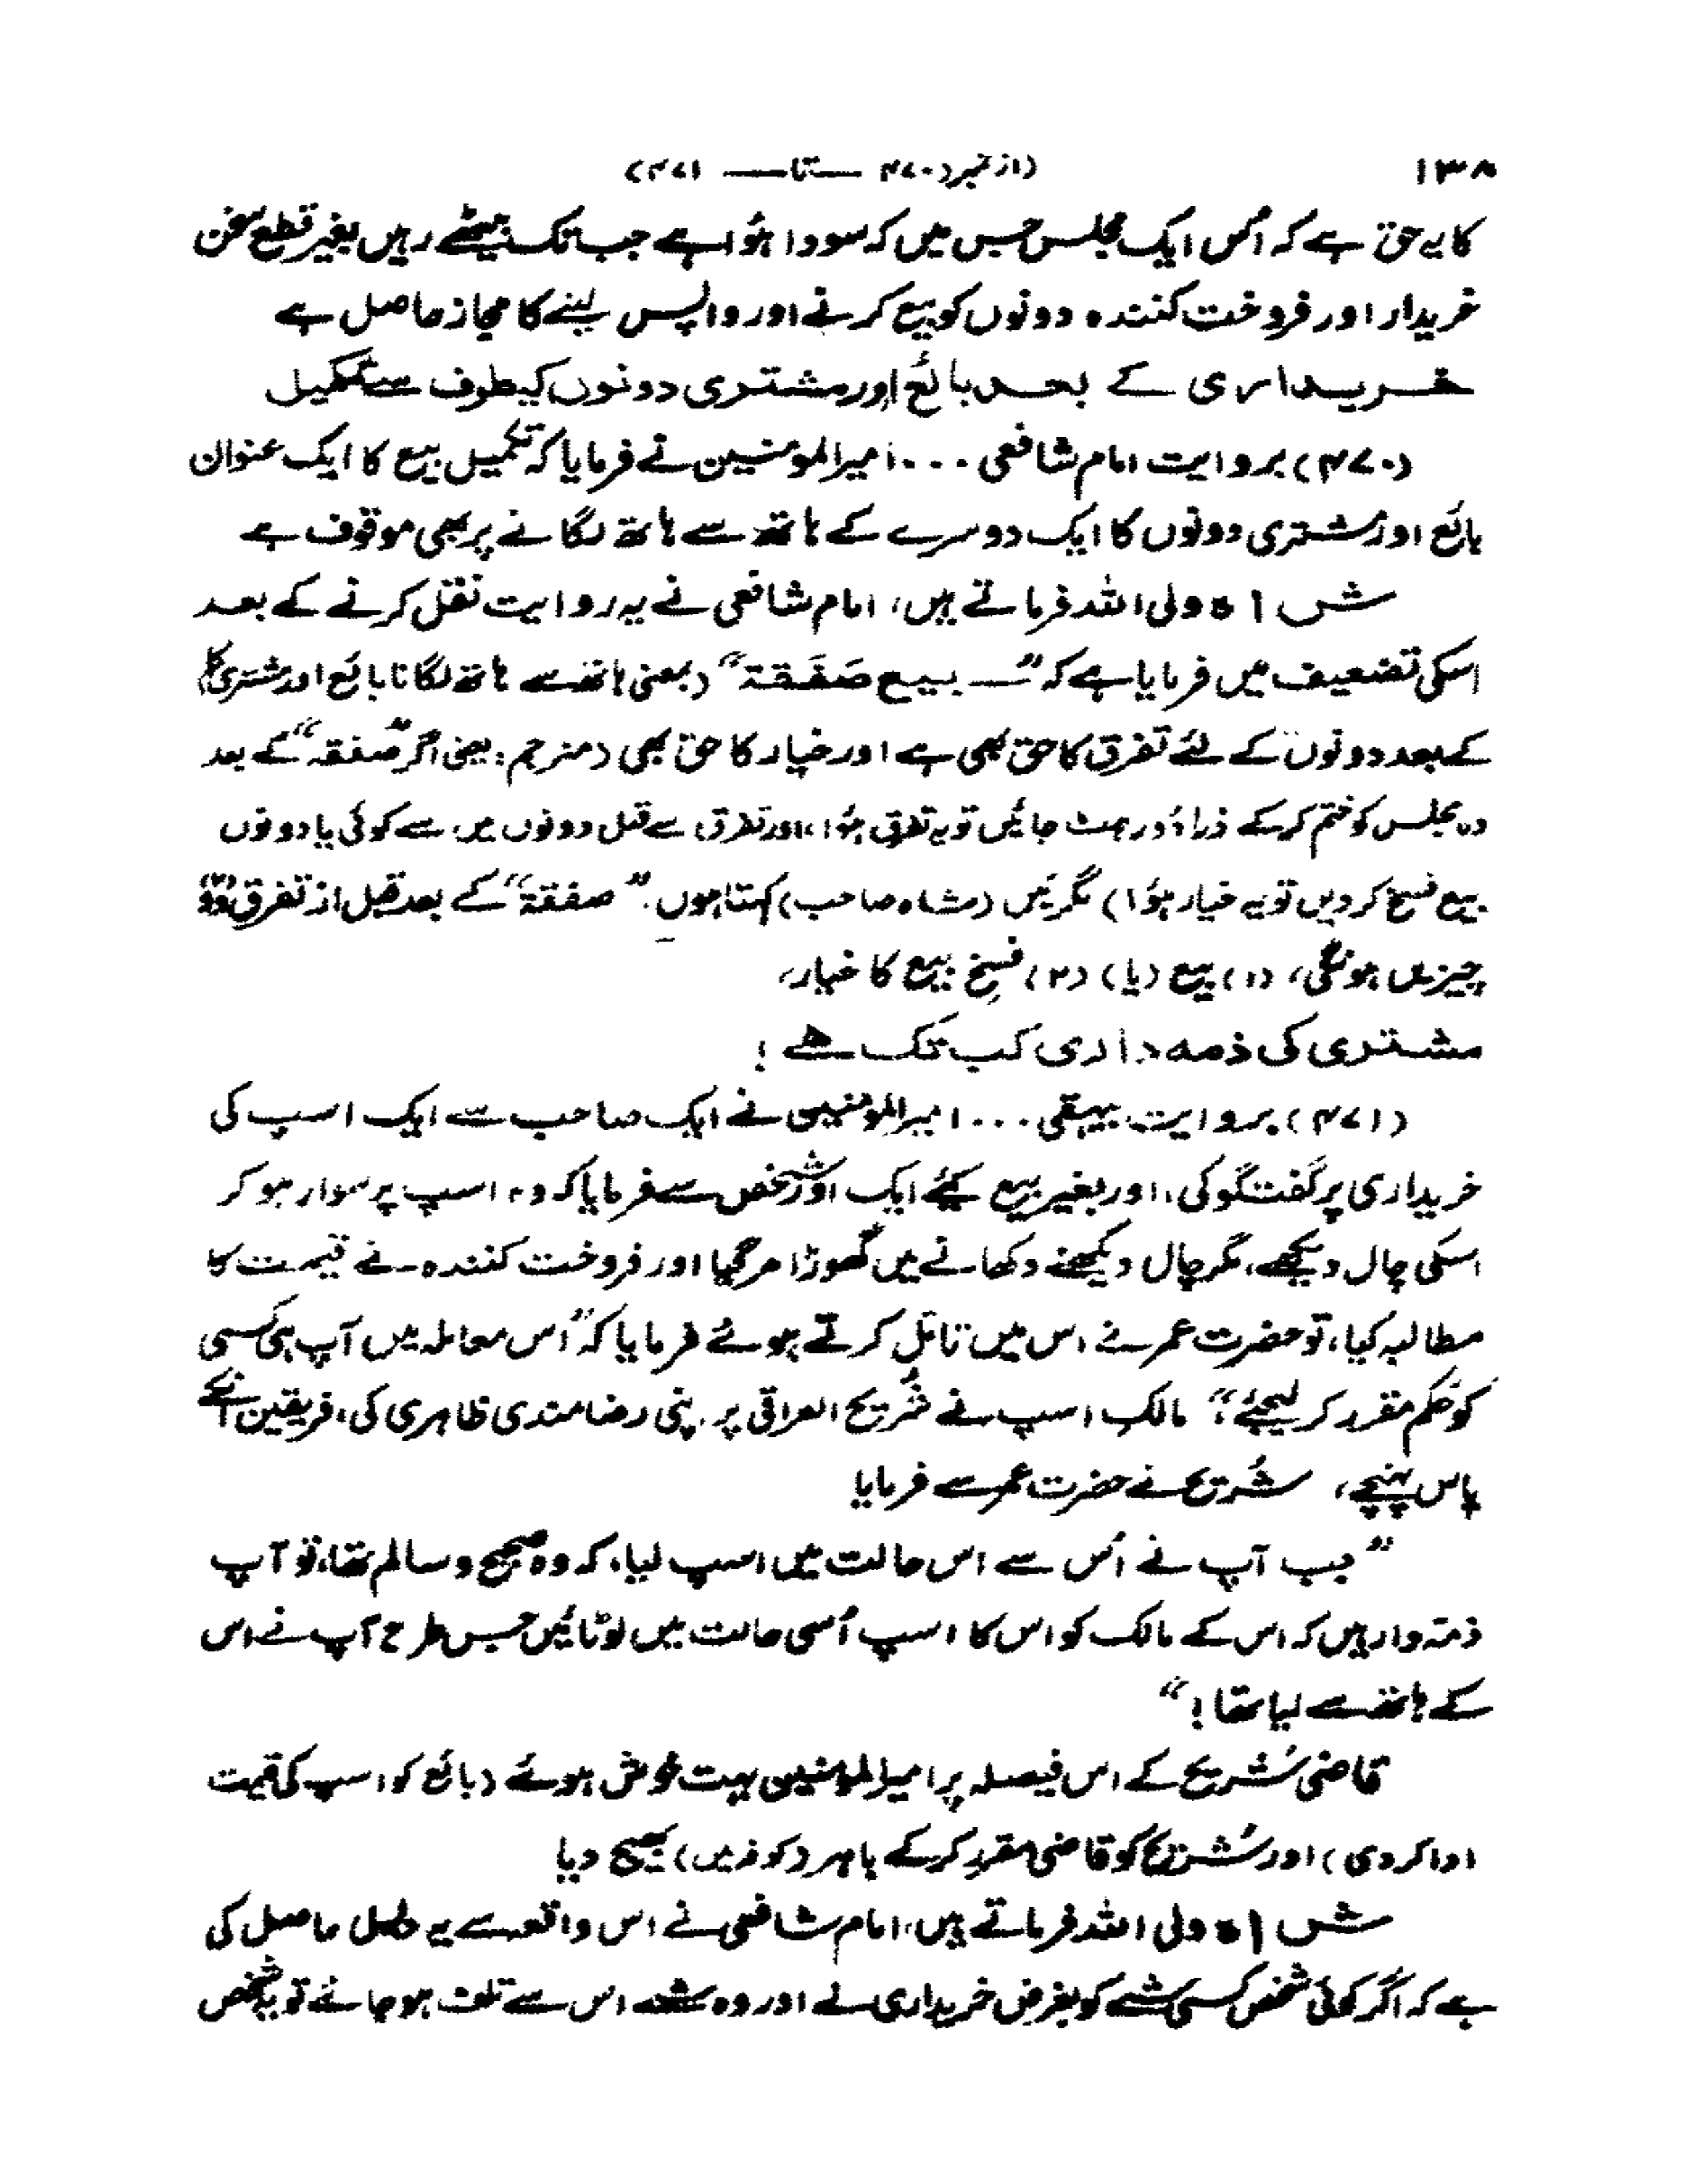 ۱۳۸ (از نمبر (۴۷۰ — تا — ۴۷۱)
کا یہ حق ہے کہ اُس ایک مجلس جس میں کہ سودا ہؤا ہے جب تک بیٹھے رہیں بغیر قطع سخن
خریدار اور فروخت کنندہ دونوں کو بیع کرنے اور واپس لینے کا مجاز حاصل ہے
خریداری کے بعد بائع اور مشتری دونوں کیطرف سے تکمیل
(۴۷۰) بروایت امام شافعی ... امیرالمومنین نے فرمایا کہ تکمیل بیع کا ایک عنوان
بائع اور مشتری دونوں کا ایک دوسرے کے ہاتھ سے ہاتھ لگانے پر بھی موقوف ہے
شاہ ولی اللہ فرماتے ہیں، امام شافعی نے یہ روایت نقل کرنے کے بعد
اسکی تضعیف میں فرمایا ہے کہ "بیع صَفَقۃ" (بمعنی ہاتھ سے ہاتھ لگانا بائع اور مشتری کا)
کے بعد دونوں کے لئے تفرق کا حق بھی ہے اور خیار کا حق بھی (مترجم: یعنی اگر "صفقہ" کے بعد
وہ مجلس کو ختم کرکے ذرا دُور ہٹ جائیں تو یہ تفرق ہؤا، اور تفرق سے قبل دونوں میں سے کوئی یا دونوں
بیع فسخ کر دیں تو یہ خیار ہؤا) مگر میں (شاہ صاحب) کہتا ہوں. "صفقۃ" کے بعد قبل از تفرق دو
چیزیں ہونگی، (۱) بیع (یا) (۲) فسخ بیع کا خیار،
مشتری کی ذمہ داری کب تک ہے !
(۴۷۱) بروایت بیہقی ... امیرالمومنین نے ایک صاحب سے ایک اسپ کی
خریداری پر گفتگو کی، اور بغیر بیع کیئے ایک اور شخص سے فرمایا کہ وہ اسپ پر سوار ہو کر
اسکی چال دیکھے، مگر چال دیکھنے دکھانے میں گھوڑا مر گیا اور فروخت کنندہ نے قیمت کا
مطالبہ کیا، تو حضرت عمر نے اس میں تامّل کرتے ہوئے فرمایا کہ "اس معاملہ میں آپ ہی کسی
کو حَکم مقرر کر لیجئے؛" مالکِ اسپ نے شُریح العراقی پر اپنی رضامندی ظاہری کی، فریقین انکے
پاس پہنچے، شُریح نے حضرت عمر سے فرمایا
"جب آپ نے اُس سے اس حالت میں اسپ لیا، کہ وہ صحیح و سالم تھا، تو آپ
ذمّہ وار ہیں کہ اس کے مالک کو اس کا اسپ اُسی حالت میں لوٹائیں جس طرح آپ نے اس
کے ہاتھ سے لیا تھا !"
قاضی شُریح کے اس فیصلہ پر امیرالمومنین بہت خوش ہوئے (بائع کو اسپ کی قیمت
ادا کر دی) اور شُریح کو قاضی مقرر کرکے باہر (کوفہ میں) بھیج دیا
شاہ ولی اللہ فرماتے ہیں، امام شافعی نے اس واقعہ سے یہ دلیل حاصل کی
ہے کہ اگر کوئی شخص کسی شے کو بغرض خریداری لے اور وہ شے اس سے تلف ہو جائے تو یہ شخص